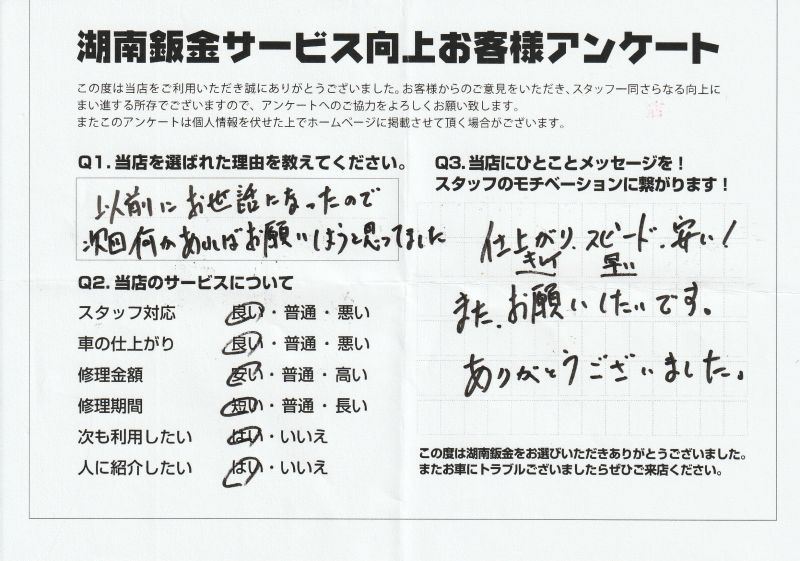 湖南鈑金サービス向上お客様アンケート
この度は当店をご利用いただき誠にありがとうございました。お客様からのご意見をいただき、スタッフ一同さらなる向上に
まい進する所存でございますので、アンケートへのご協力をよろしくお願い致します。
またこのアンケートは個人情報を伏せた上でホームページに掲載させて頂く場合がございます。
Q1.当店を選ばれた理由を教えてください。
以前にお世話になったので
次回何かあればお願いしようと思ってました
Q2.当店のサービスについて
スタッフ対応 良い・普通・悪い
車の仕上がり 良い・普通・悪い
修理金額 安い・普通・高い
修理期間 短い・普通・長い
次も利用したい はい・いいえ
人に紹介したい はい・いいえ
Q3.当店にひとことメッセージを!
スタッフのモチベーションに繋がります!
仕上がり、スピード、安い!
キレイ 早い
また、お願いしたいです。
ありがとうございました。
この度は湖南鈑金をお選びいただきありがとうございました。
またお車にトラブルございましたらぜひご来店ください。